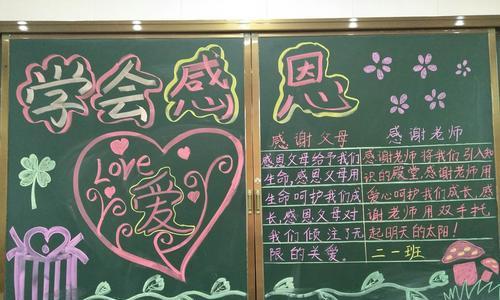 学会感恩
Love
爱
感谢父母
感恩父母给予我们
生命,感恩父母用
生命呵护我们成
长,感恩父母对
我们倾注了无
限的关爱。
感谢老师
感谢老师将我们引入知
识的殿堂,感谢老师用
爱心呵护我们成长,感
谢老师用双手托
起明天的太阳!
二一班